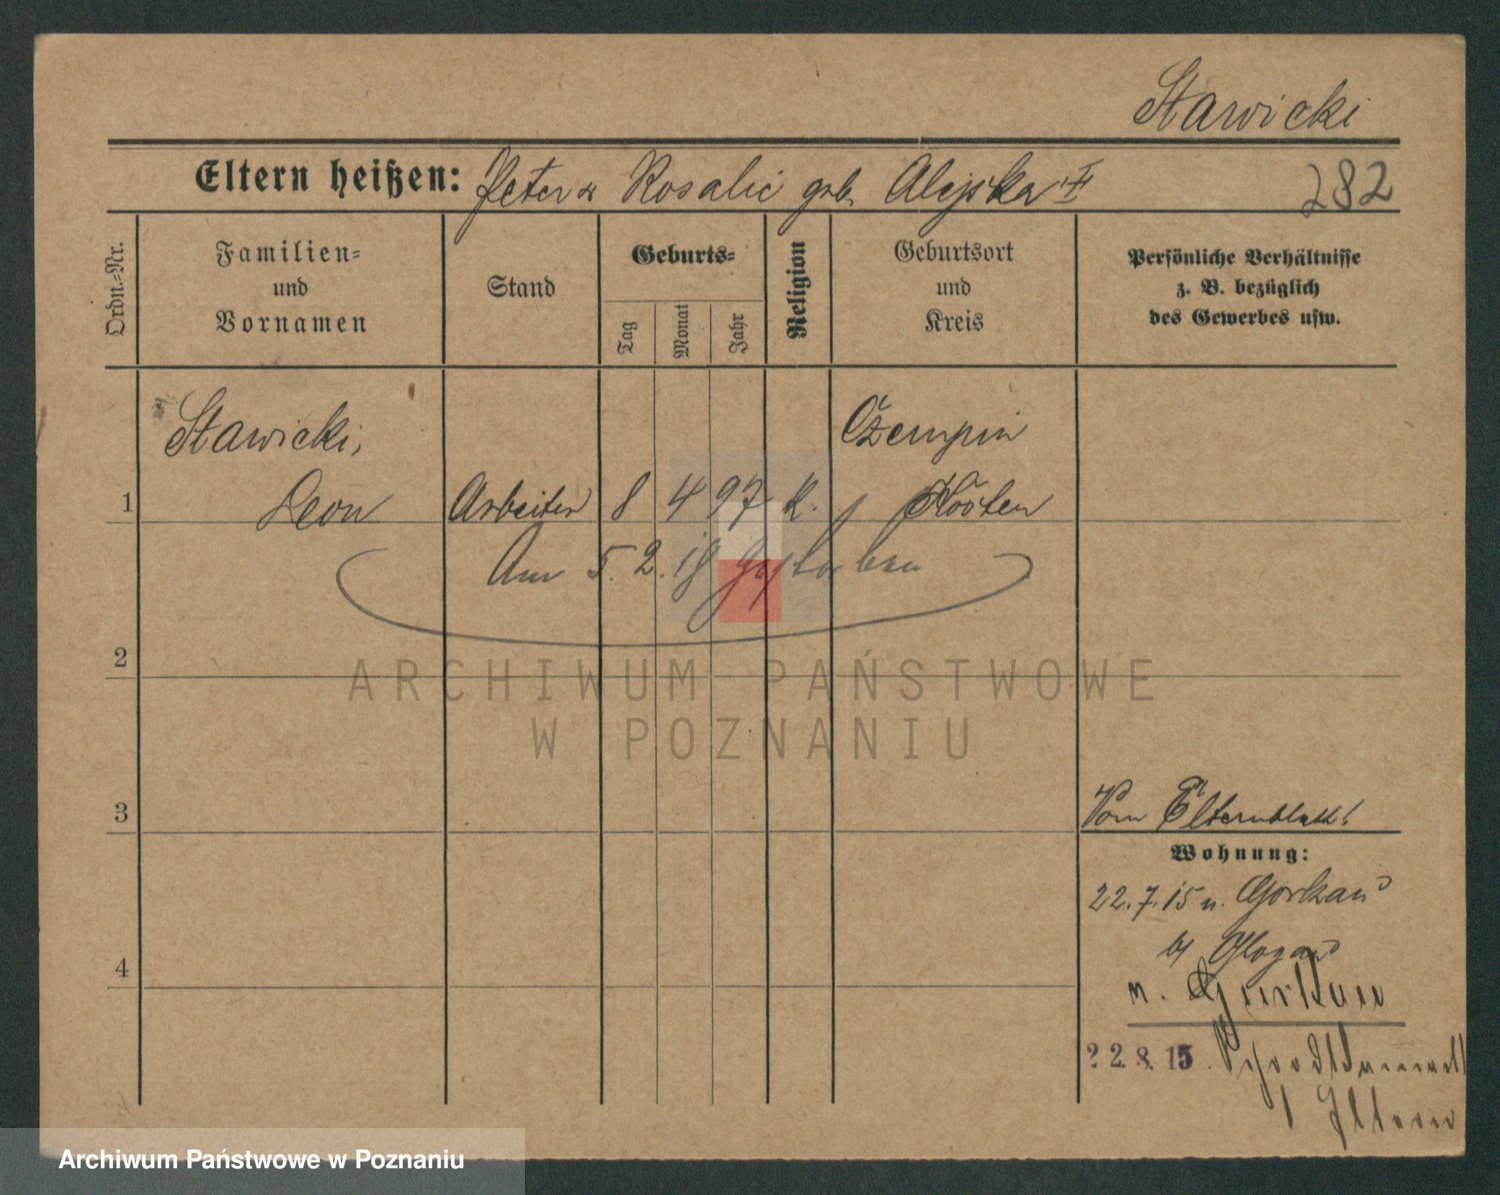 Stawicki
Eltern heißen: Peter & Rosalie geb. Alejska
282
Ordn.-Nr.
Familien-
und
Vornamen
Stand
Geburts-
Tag
Monat
Jahr
Religion
Geburtsort
und
Kreis
Persönliche Verhältnisse
z. B. bezüglich
des Gewerbes usw.
Stawicki,
Czempin
1 Leon Arbeiter 8 4 97 K. Kosten
Am 5.2.18 gestorben
2
ARCHIWUM PAŃSTWOWE
W POZNANIU
3
Vom Elternblatt!
Wohnung:
22.7.15 n. Gorkau
b/ Glogau
4
n. Gurkau
22.8.15. Schrodkamarkt
Eltern
Archiwum Państwowe w Poznaniu